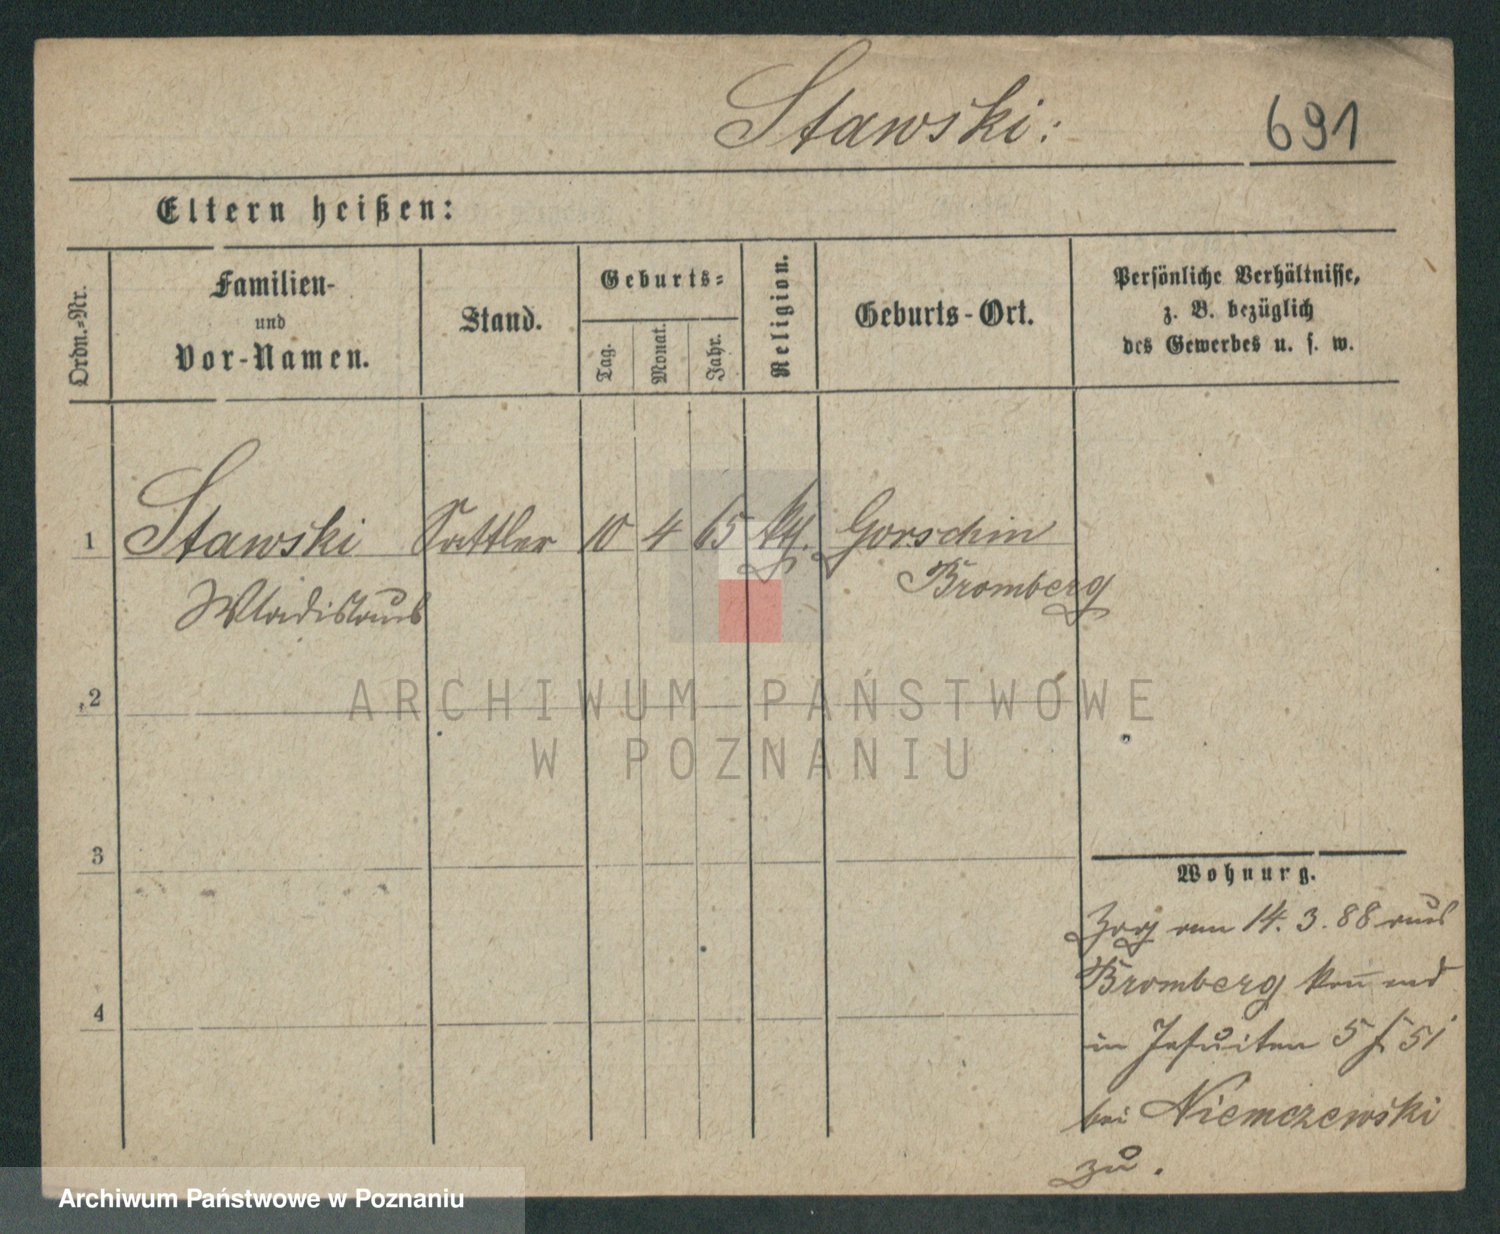 Stawski:
691
Eltern heißen:
Ordn.=Nr.
Familien-
und
Vor-Namen.
Stand.
Geburts=
Tag.
Monat.
Jahr.
Religion.
Geburts-Ort.
Persönliche Verhältnisse,
z. B. bezüglich
des Gewerbes u. s. w.
1 Stawski Sattler 10 4 65 kth. Gorschin
Wladislaus Bromberg
2
3
4
Wohnurg.
Zog am 14. 3. 88 aus
Bromberg und
in Jesuiten 5 51
bei Niemczewski
zu.
ARCHIWUM PAŃSTWOWE
W POZNANIU
Archiwum Państwowe w Poznaniu